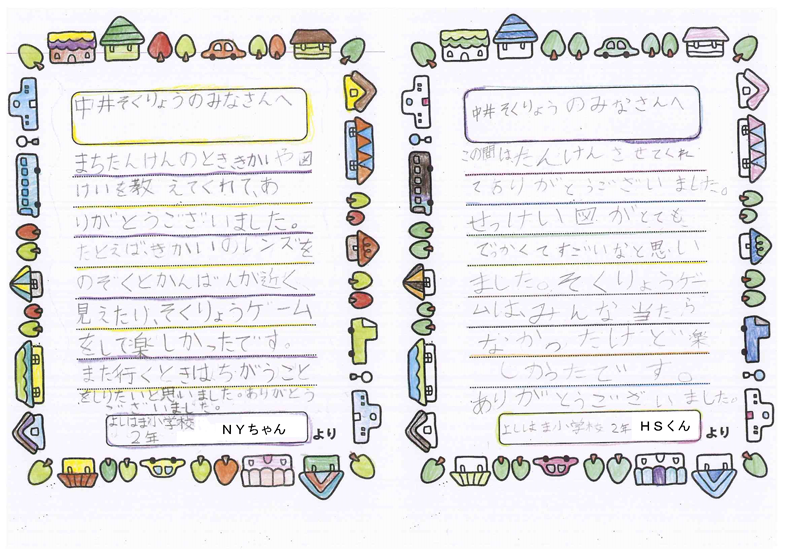 中井そくりょうのみなさんへ
まちたんけんのとき、きかいや図
けいを教えてくれて、あ
りがとうございました。
たとえば、きかいのレンズを
のぞくとかんばんが近く
見えたり、そくりょうゲーム
をして楽しかったです。
また行くときはちがうこと
をしりたいと思いました。ありがとう
ございました。
よしはま小学校
2年 NYちゃん より
中井そくりょうのみなさんへ
この間はたんけんさせてくれ
てありがとうございました。
せっけい図がとても
でっかくてすごいなと思い
ました。そくりょうゲー
ムは、みんな当たら
なかったけど楽
しかったです。
ありがとうございました。
よしはま小学校 2年 HSくん より